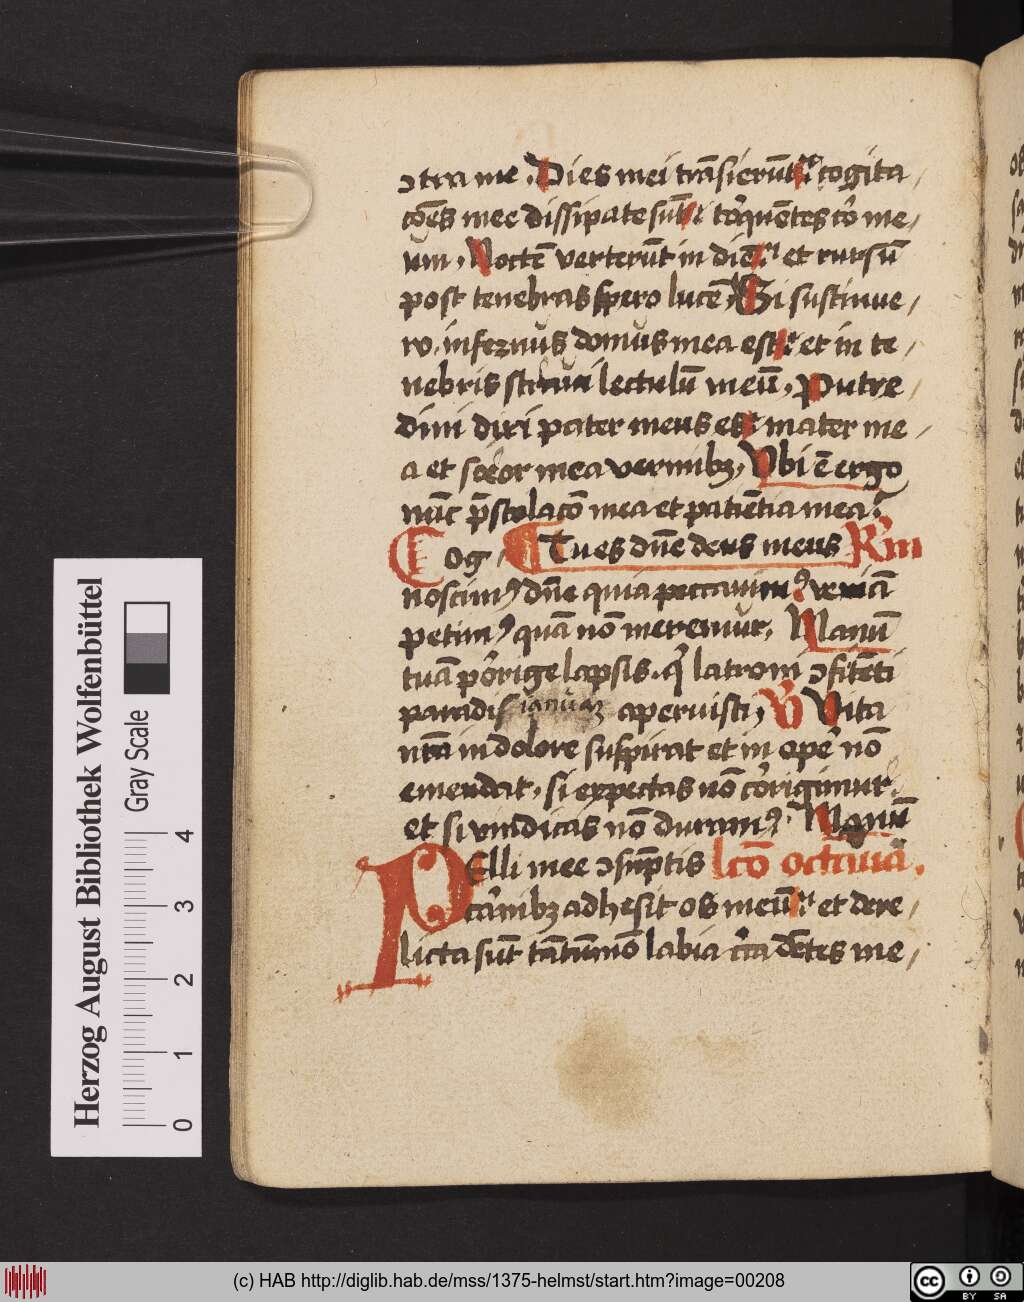 ɔtra me. Dies mei trāsierūt cogita
cōes mee dissipate sūt torquētes cor me
um. Noctē verterūt in diē et rursū
post tenebras spero lucē Si sustinue
ro. infernus domus mea est et in te
nebris stravi lectulū meū. Putre
dini dixi pater meus es mater me
a et soror mea vermibꝫ. Vbi ē ergo
nūc p̄stolacō mea et patiētia mea
Cog Tu es dn̄e deus meus R'in
noscimꝰ dn̄e quia peccavimꝰ veniā
petimꝰ quā nō meremur. Manū
tuā porrige lapsis. q' latroni ɔfitēti
paradisi ianuaꝫ aperuisti, V Vita
nr̄a in dolore suspirat et in ope nō
emendat. si expectas nō corrigimur
et si vindicas nō duramꝰ. Manū
Pelli mee ɔsūptis lcō octava.
carnibꝫ adhesit os meū et dere
licta sūt tātūmō labia cir̄ca dētes me
Herzog August Bibliothek Wolfenbüttel
Gray Scale
0 1 2 3 4
(c) HAB http://diglib.hab.de/mss/1375-helmst/start.htm?image=00208
cc BY SA